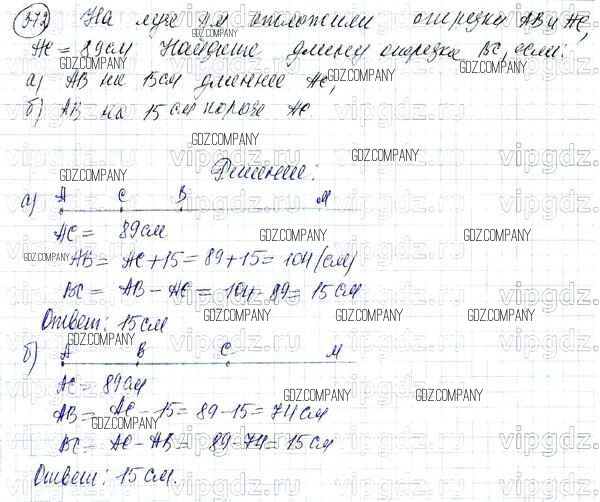 372) На луче АМ отложили отрезки АВ и АС,
АС = 89см Найдите длину отрезка ВС, если:
а) АВ на 15см длиннее АС;
б) АВ на 15 см короче АС
Решение:
а) А С В М
АС = 89см
АВ = АС + 15 = 89 + 15 = 104 (см)
ВС = АВ - АС = 104 - 89 = 15см
Ответ: 15см
б) А В С М
АС = 89см
АВ = АС - 15 = 89 - 15 = 74см
ВС = АС - АВ = 89 - 74 = 15см
Ответ: 15см.